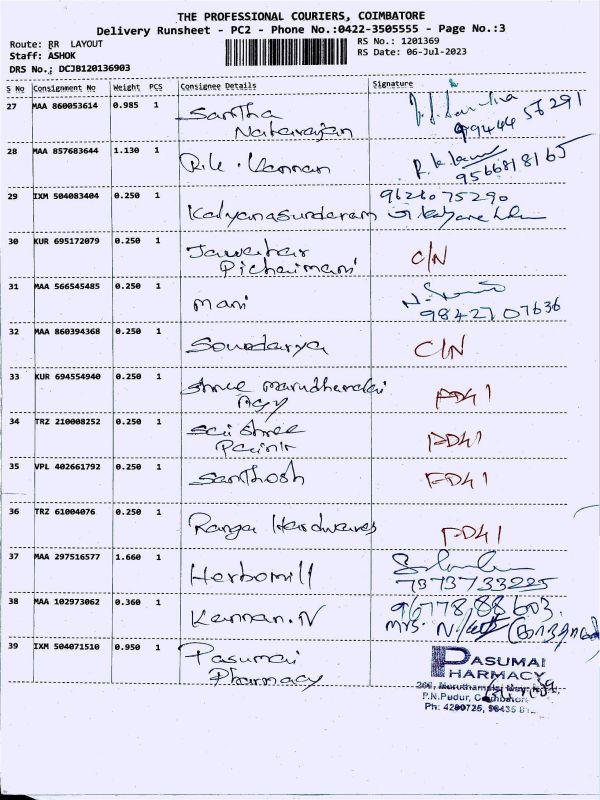 THE PROFESSIONAL COURIERS, COIMBATORE
Delivery Runsheet - PC2 - Phone No.:0422-3505555 - Page No.:3
Route: RR LAYOUT
RS No.: 1201369
Staff: ASHOK
RS Date: 06-Jul-2023
DRS No.: DCJB120136903
S No Consignment No Weight PCS Consignee Details Signature
27 MAA 860053614 0.985 1 Santha Natarajan 99444 56291
28 MAA 857683644 1.130 1 R.K. Kannan 9566818165
29 IXM 504083404 0.250 1 Kalyanasundaram 9628075290
30 KUR 695172079 0.250 1 Jawahar Pichaimani C/N
31 MAA 566545485 0.250 1 Mani 98427 07636
32 MAA 860394368 0.250 1 Soundarya C/N
33 KUR 694554940 0.250 1 Shree Agy PD41
34 TRZ 210008252 0.250 1 Sai Shree PD41
35 VPL 402661792 0.250 1 Santhosh PD41
36 TRZ 61004076 0.250 1 Ranga Hardwares PD41
37 MAA 297516577 1.660 1 Herbomill 7373733225
38 MAA 102973062 0.360 1 Kannan.N 96778,88603. Mrs.
39 IXM 504071510 0.950 1 Pasumai Pharmacy PASUMAI PHARMACY
P.N.Pudur, Coimbatore
Ph: 4200725,